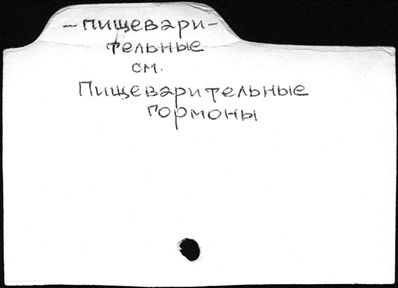 – пищевари-
тельные
см.
Пищеварительные
гормоны